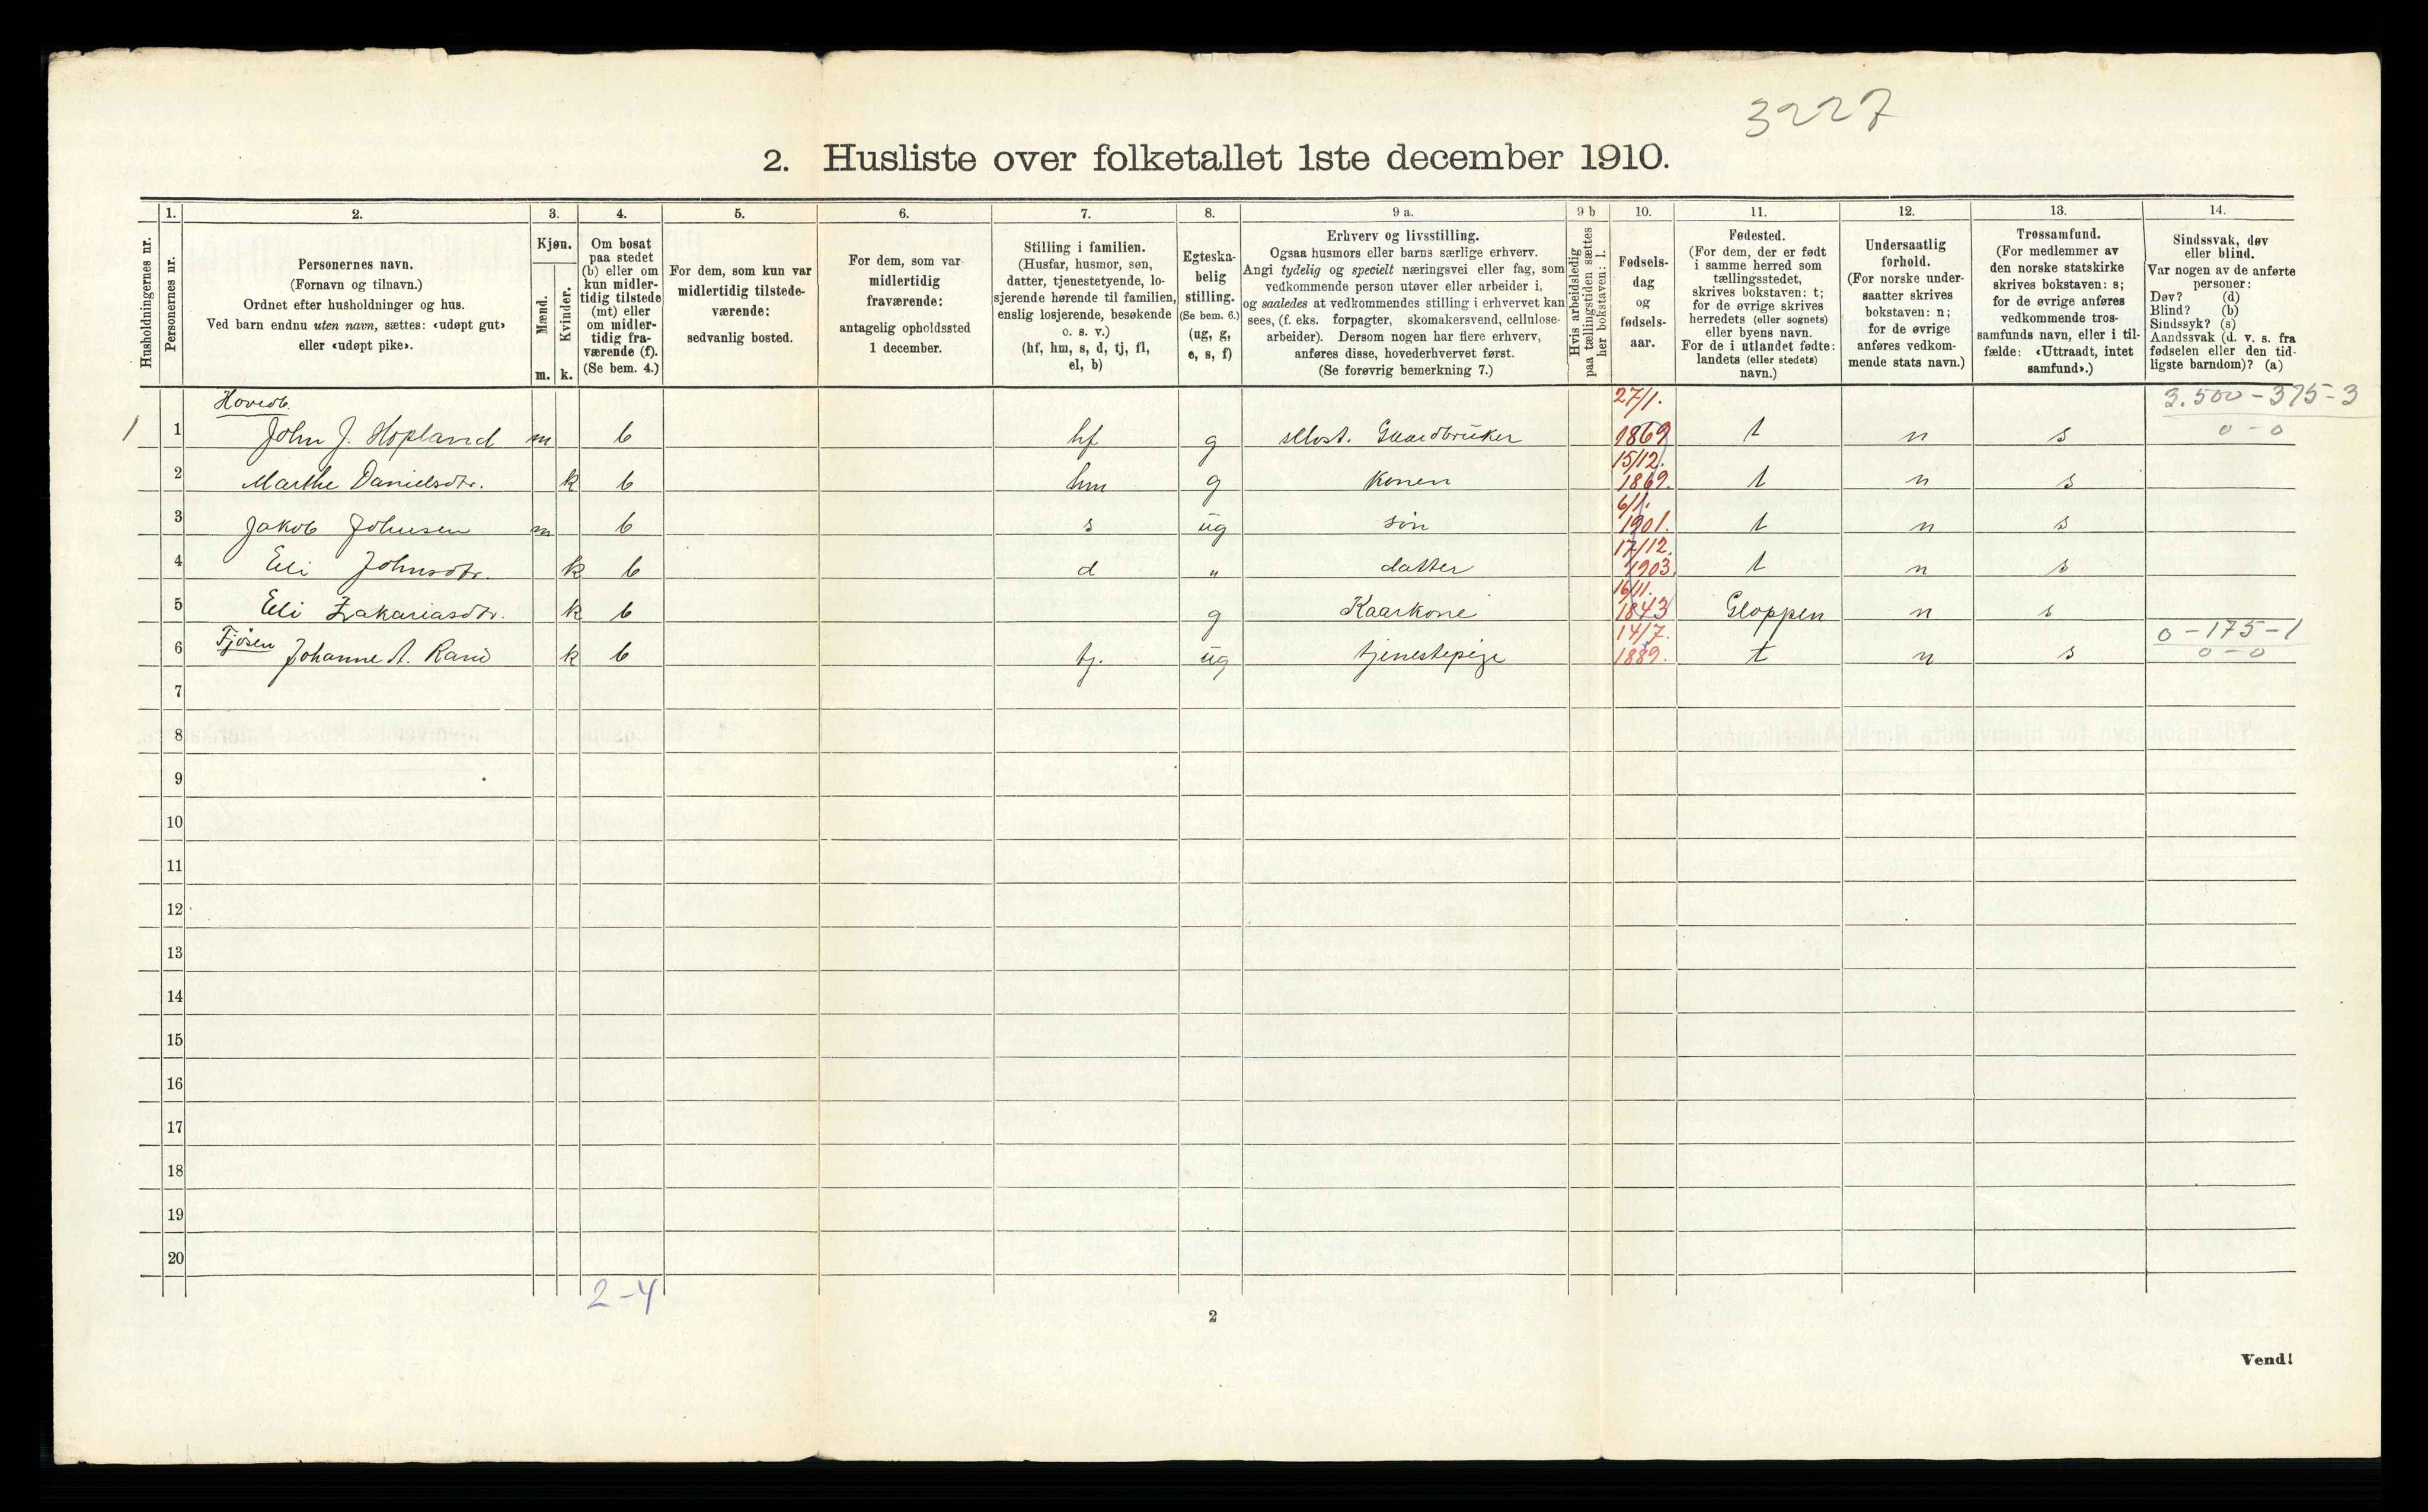 3227
2. Husliste over folketallet 1ste december 1910.
1. 2. 3. 4. 5. 6. 7. 8. 9 a. 9 b 10. 11. 12. 13. 14.
Husholdningernes nr.
Personernes nr.
Personernes navn.
(Fornavn og tilnavn.)
Ordnet efter husholdninger og hus.
Ved barn endnu uten navn, sættes: «udøpt gut»
eller «udøpt pike».
Kjøn.
Mænd.
Kvinder.
m. k.
Om bosat
paa stedet
(b) eller om
kun midler-
tidig tilstede
(mt) eller
om midler-
tidig fra-
værende (f).
(Se bem. 4.)
For dem, som kun var
midlertidig tilstede-
værende:
sedvanlig bosted.
For dem, som var
midlertidig
fraværende:
antagelig opholdssted
1 december.
Stilling i familien.
(Husfar, husmor, søn,
datter, tjenestetyende, lo-
sjerende hørende til familien,
enslig losjerende, besøkende
o. s. v.)
(hf, hm, s, d, tj, fl,
el, b)
Egteska-
belig
stilling.
(Se bem. 6.)
(ug, g,
e, s, f)
Erhverv og livsstilling.
Ogsaa husmors eller barns særlige erhverv.
Angi tydelig og specielt næringsvei eller fag, som
vedkommende person utøver eller arbeider i,
og saaledes at vedkommendes stilling i erhvervet kan
sees, (f. eks. forpagter, skomakersvend, cellulose-
arbeider). Dersom nogen har flere erhverv,
anføres disse, hovederhvervet først.
(Se forøvrig bemerkning 7.)
Hvis arbeidsledig
paa tællingstiden sættes
her bokstaven: l.
Fødsels-
dag
og
fødsels-
aar.
Fødested.
(For dem, der er født
i samme herred som
tællingsstedet,
skrives bokstaven: t;
for de øvrige skrives
herredets (eller sognets)
eller byens navn.
For de i utlandet fødte:
landets (eller stedets)
navn.)
Undersaatlig
forhold.
(For norske under-
saatter skrives
bokstaven: n;
for de øvrige
anføres vedkom-
mende stats navn.)
Trossamfund.
(For medlemmer av
den norske statskirke
skrives bokstaven: s;
for de øvrige anføres
vedkommende tros-
samfunds navn, eller i til-
fælde: «Uttraadt, intet
samfund».)
Sindssvak, døv
eller blind.
Var nogen av de anførte
personer:
Døv? (d)
Blind? (b)
Sindssyk? (s)
Aandssvak (d. v. s. fra
fødselen eller den tid-
ligste barndom)? (a)
Hovedb. 27/1. 3.500-375-3
1 1 John J. Hopland m b hf g selvst. Gaardbruker 1869 t n s 0-0
15/12.
2 Marthe Danielsdtr. k b hm g konen 1869. t n s
6/1.
3 Jakob Johnsen m b s ug søn 1901. t n s
17/12.
4 Eli Johnsdtr. k b d " datter 1903. t n s
16/11.
5 Eli Zakariasdtr. k b g Kaarkone 1843 Gloppen n s
Fjøsen 14/7. 0-175-1
6 Johanne A. Rand k b tj. ug tjenestepige 1889. t n s 0-0
7
8
9
10
11
12
13
14
15
16
17
18
19
20
2-4
2
Vend!